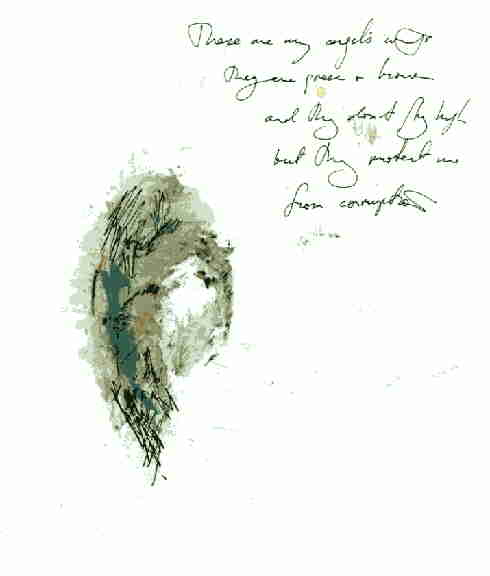 These are my angel's wings
They are green + brown
and they don't fly high
but they protect me
from corruption